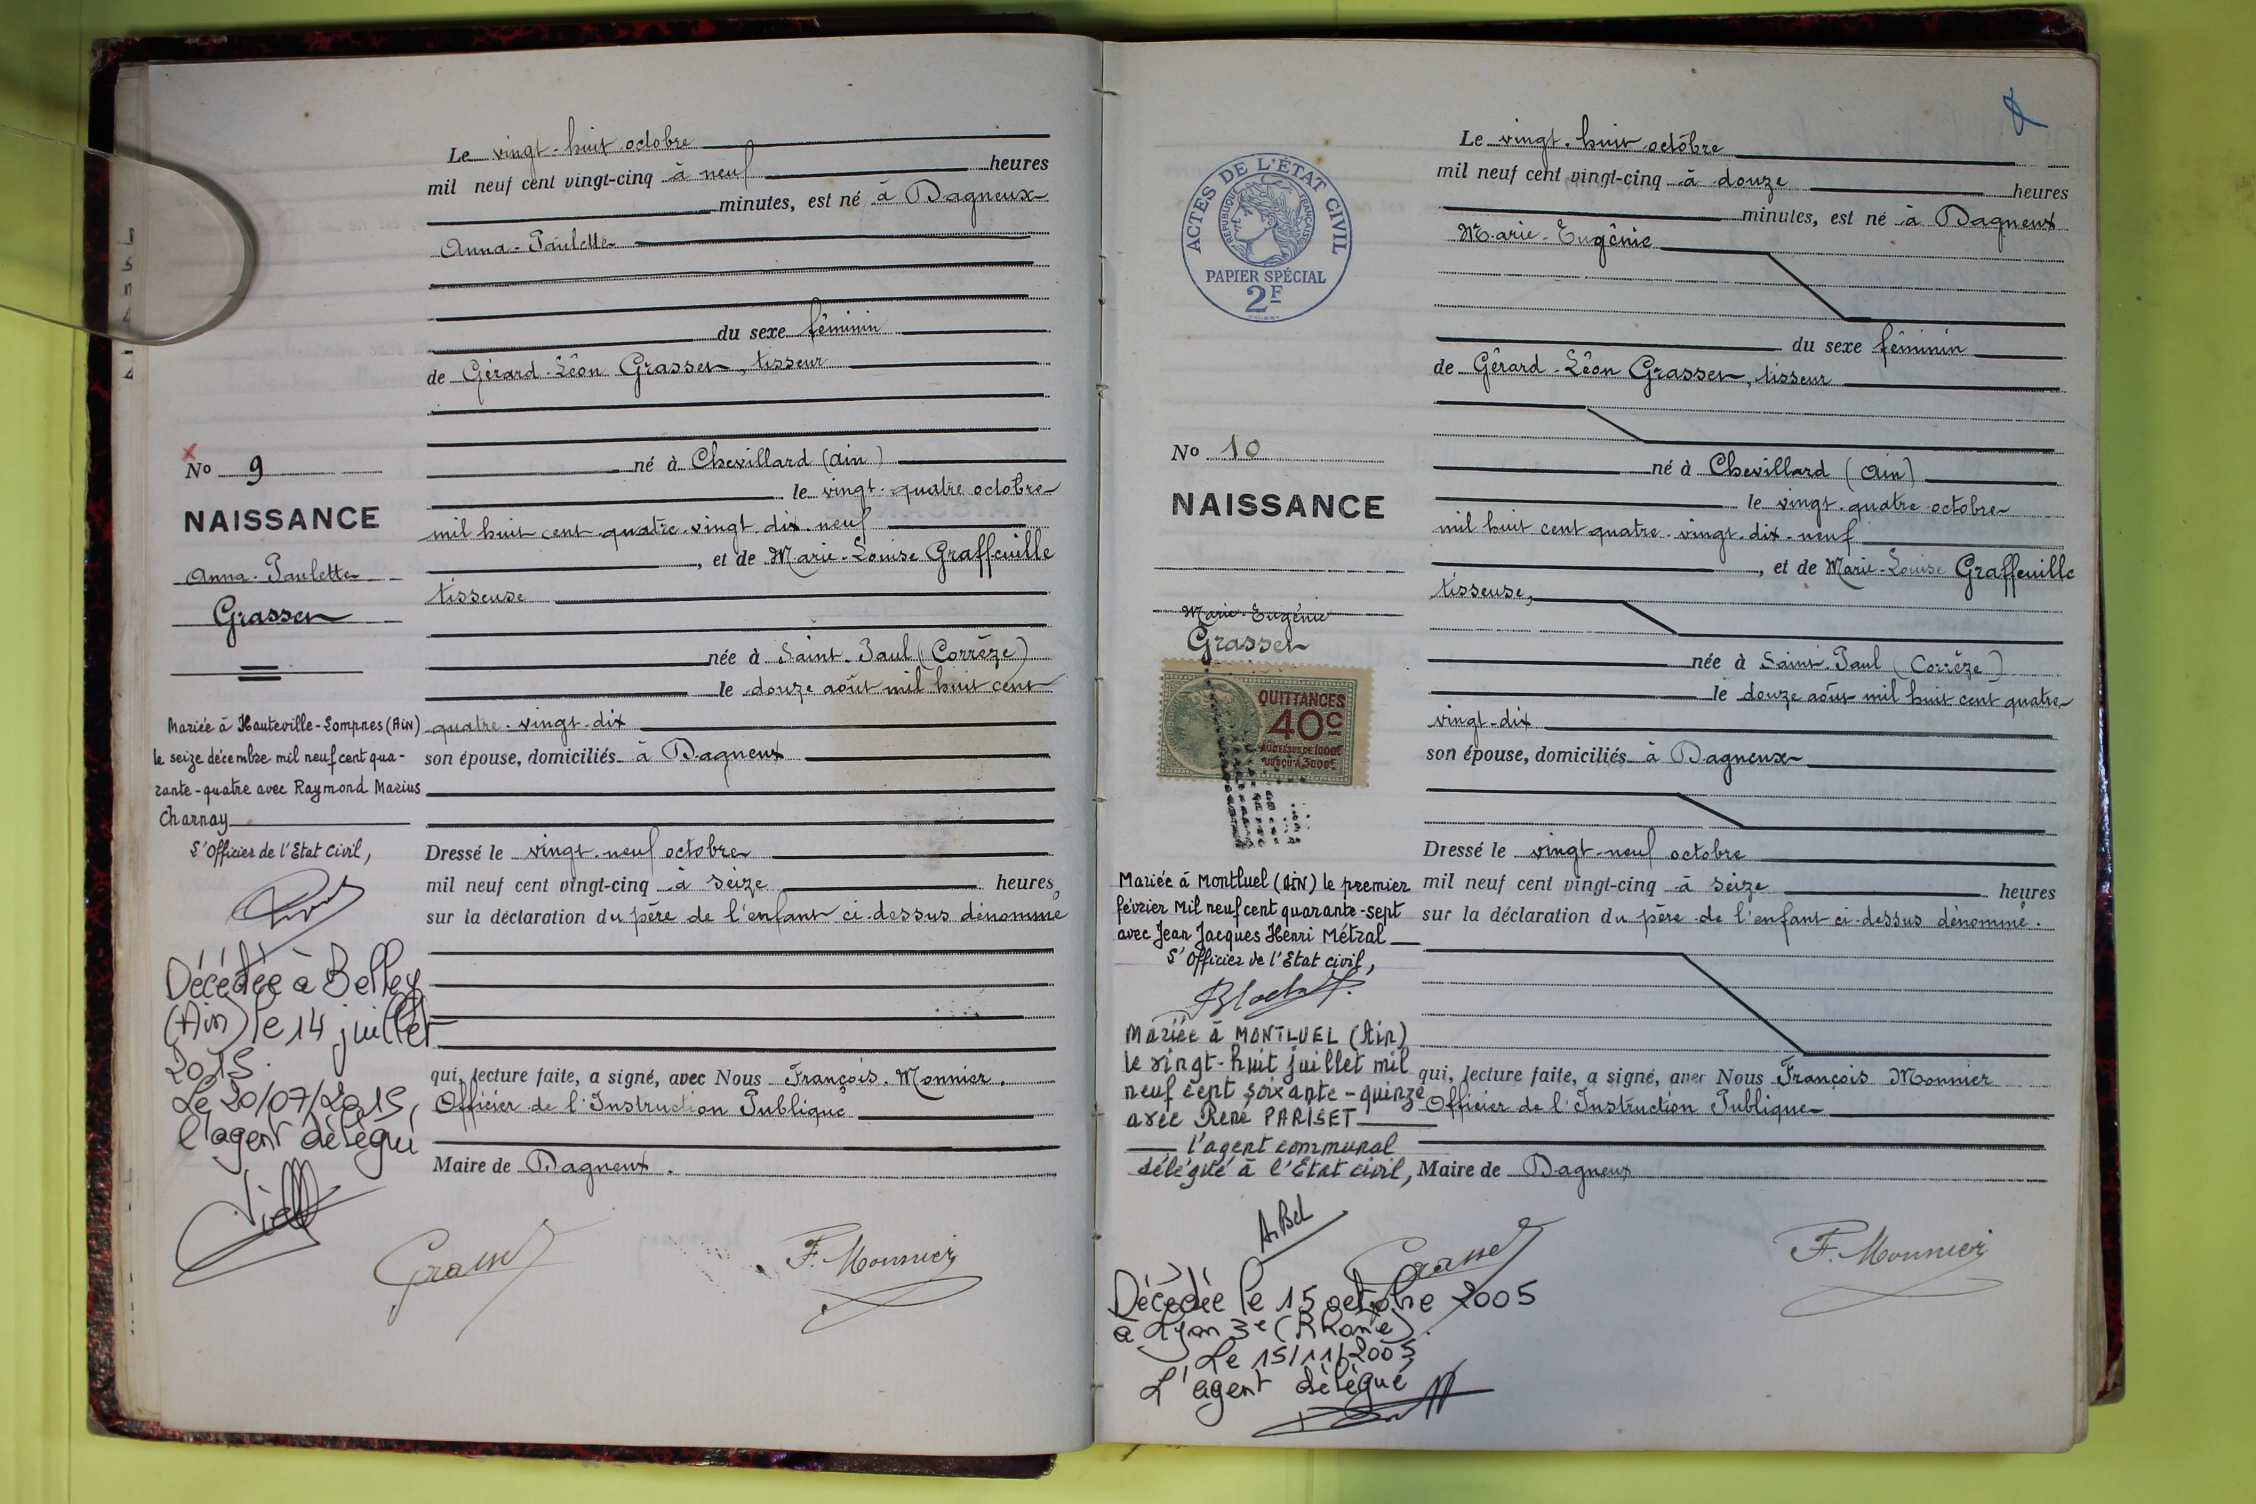 Le vingt-huit octobre
mil neuf cent vingt-cinq à neuf heures
minutes, est né à Dagneux
Anna-Paulette
du sexe féminin
de Gérard-Léon Grasset, tisseur
né à Chevillard (Ain)
le vingt-quatre octobre
mil huit cent quatre-vingt-dix-neuf
, et de Marie-Louise Graffeuille
tisseuse
née à Saint-Paul (Corrèze)
le douze août mil huit cent
quatre-vingt-dix
son épouse, domiciliés à Dagneux
Dressé le vingt-neuf octobre
mil neuf cent vingt-cinq à seize heures,
sur la déclaration du père de l'enfant ci-dessus dénommé
qui, lecture faite, a signé, avec Nous François Monnier.
Officier de l'Instruction Publique
Maire de Dagneux.
Grasset
F. Monnier
No 9
NAISSANCE
Anna-Paulette
Grasset
Mariée à Hauteville-Lompnes (Ain)
le seize décembre mil neuf cent qua-
rante-quatre avec Raymond Marius
Charnay
L'Officier de l'Etat Civil,
Décédée à Belley
(Ain) le 14 juillet
2015.
Le 20/07/2015,
l'agent délégué
Le vingt-huit octobre
mil neuf cent vingt-cinq à douze heures
minutes, est né à Dagneux
Marie-Eugénie
du sexe féminin
de Gérard-Léon Grasset, tisseur
né à Chevillard (Ain)
le vingt-quatre octobre
mil huit cent quatre-vingt-dix-neuf
, et de Marie-Louise Graffeuille
tisseuse,
née à Saint-Paul (Corrèze)
le douze août mil huit cent quatre
vingt-dix
son épouse, domiciliés à Dagneux
Dressé le vingt-neuf octobre
mil neuf cent vingt-cinq à seize heures
sur la déclaration du père de l'enfant ci-dessus dénommé.
qui, lecture faite, a signé, avec Nous François Monnier
Officier de l'Instruction Publique
Maire de Dagneux
Grasset
F. Monnier
ACTES DE L'ÉTAT CIVIL
RÉPUBLIQUE FRANÇAISE
PAPIER SPÉCIAL
2F
No 10
NAISSANCE
Marie-Eugénie
Grasset
QUITTANCES
40c
AU DESSUS DE 1000F
JUSQU'À 3000F
Mariée à Montluel (Ain) le premier
février Mil neuf cent quarante-sept
avec Jean Jacques Henri Métral
L'Officier de l'Etat civil,
Mariée à MONTLUEL (Ain)
le vingt-huit juillet mil
neuf cent soixante-quinze
avec René PARISET
l'agent communal
délégué à l'Etat civil,
Décédée le 15 octobre 2005
à Lyon 3e (Rhône).
Le 15/11/2005
L'agent délégué